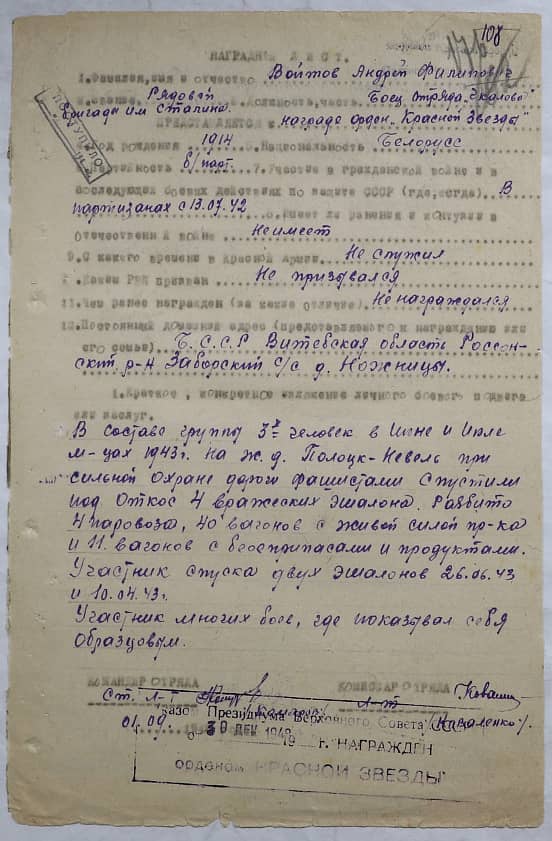 108
НАГРАДНОЙ ЛИСТ.
1. Фамилия, имя и отчество Войтов Андрей Филипович
2. Звание Рядовой 3. Должность, часть Боец отряда Чкалова
"Бригады им Сталина"
ПРЕДСТАВЛЯЕТСЯ к награде орден "Красной Звезды"
ПОСТУПИЛО
4. Год рождения 1914 5. Национальность Белорусс
6. Партийность б/парт. 7. Участие в гражданской войне и в
последующих боевых действиях по защите СССР (где, когда). В
партизанах с 13.07.42
8. Имеет ли ранения и контузии в
Отечественной войне Не имеет
9. С какого времени в Красной Армии Не служил
10. Каким РВК призван Не призывался
11. Чем ранее награжден (за какие отличия) Не награждался
12. Постоянный домашний адрес (представляемого к награждению или
его семьи) Б.С.С.Р Витебская область Россон-
ский р-н Заборский с/с д. Ножницы.
1. Краткое, конкретное изложение личного боевого подвига
или заслуг.
В составе группы 3х человек в Июне и Июле
м-цах 1943г. на ж.д. Полоцк-Невель при
сильной охране дороги фашистами спустили
под откос 4 вражеских эшалона. Разбито
4 паровоза, 40 вагонов с живой силой пр-ка
и 11 вагонов с боеприпасами и продуктами.
Участник спуска двух эшалонов 26.06.43
и 10.04.43г.
Участник многих боев, где показывал себя
Образцовым.
КОМАНДИР ОТРЯДА КОМИССАР ОТРЯДА
Ст. Л-т Л-т
/Коваленко/
Указом Президиума Верховного Совета СССР
01.09.
от 30 ДЕК 1948 19 г. НАГРАЖДЕН
орденом "КРАСНОЙ ЗВЕЗДЫ"